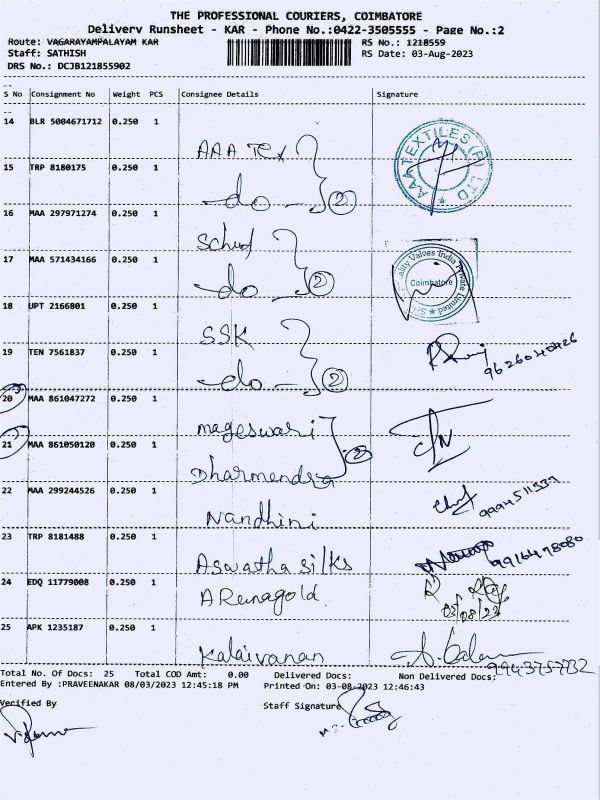 THE PROFESSIONAL COURIERS, COIMBATORE
Delivery Runsheet - KAR - Phone No.:0422-3505555 - Page No.:2
Route: VAGARAYAMPALAYAM KAR
RS No.: 1218559
Staff: SATHISH
RS Date: 03-Aug-2023
DRS No.: DCJB121855902
S No Consignment No Weight PCS Consignee Details Signature
14 BLR 5004671712 0.250 1
AAA Tex
AAA TEXTILES (P) LTD
15 TRP 8180175 0.250 1
-do- 2
16 MAA 297971274 0.250 1
17 MAA 571434166 0.250 1
-do- 2
Quality Valves India Private Limited
Coimbatore
18 UPT 2166801 0.250 1
SSK
19 TEN 7561837 0.250 1
-do- 2
9626040426
20 MAA 861047272 0.250 1
mageswari
21 MAA 861050120 0.250 1
2
Dharmendra
22 MAA 299244526 0.250 1
Nandhini
23 TRP 8181488 0.250 1
Aswatha silks
24 EDQ 11779008 0.250 1
03/08/23
25 APK 1235187 0.250 1
Kalaivanan
Total No. Of Docs: 25 Total COD Amt: 0.00 Delivered Docs: Non Delivered Docs:
Entered By :PRAVEENAKAR 08/03/2023 12:45:18 PM Printed On: 03-08-2023 12:46:43
Verified By
Staff Signature